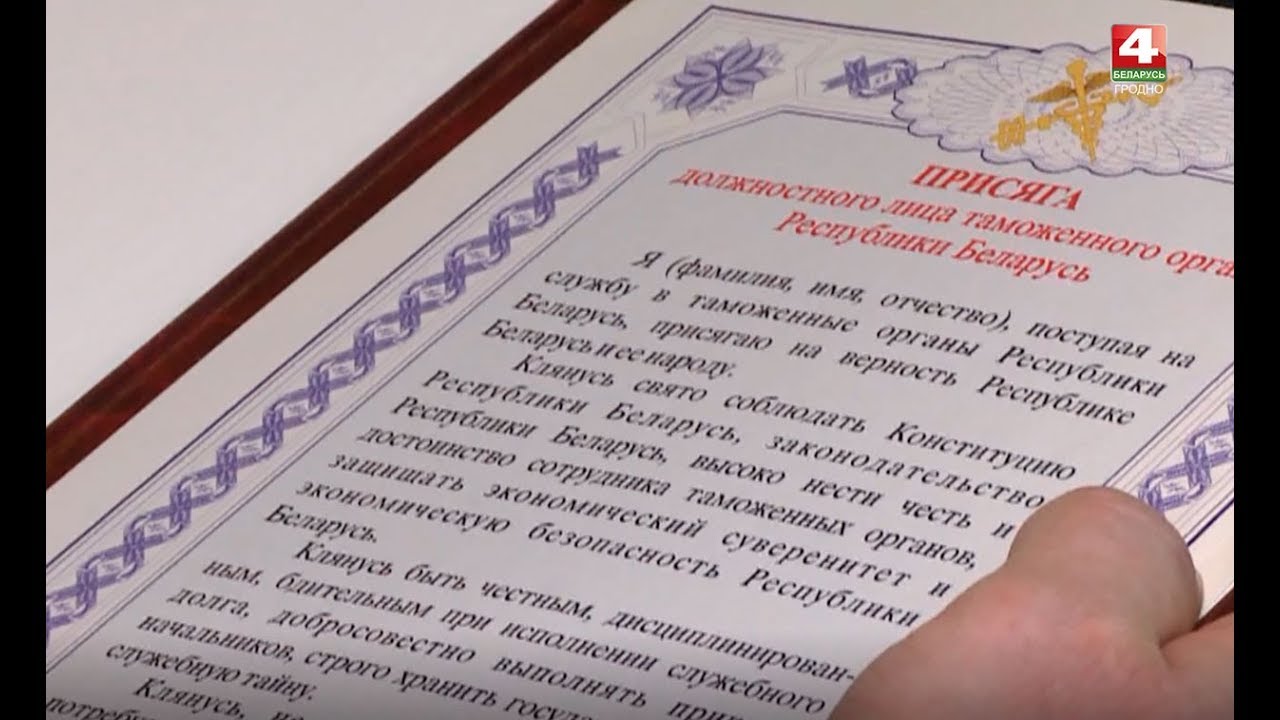 4
БЕЛАРУСЬ
ГРОДНО
ПРИСЯГА
должностного лица таможенного орга
Республики Беларусь
Я (фамилия, имя, отчество), поступая на
службу в таможенные органы Республики
Беларусь, присягаю на верность Республике
Беларусь и ее народу.
Клянусь свято соблюдать Конституцию
Республики Беларусь, законодательство
Республики Беларусь, высоко нести честь и
достоинство сотрудника таможенных органов,
защищать экономический суверенитет и
экономическую безопасность Республики
Беларусь.
Клянусь быть честным, дисциплинирован-
ным, бдительным при исполнении служебного
долга, добросовестно выполнять прик
начальников, строго хранить госуда
служебную тайну.
Клянусь, не
потребу